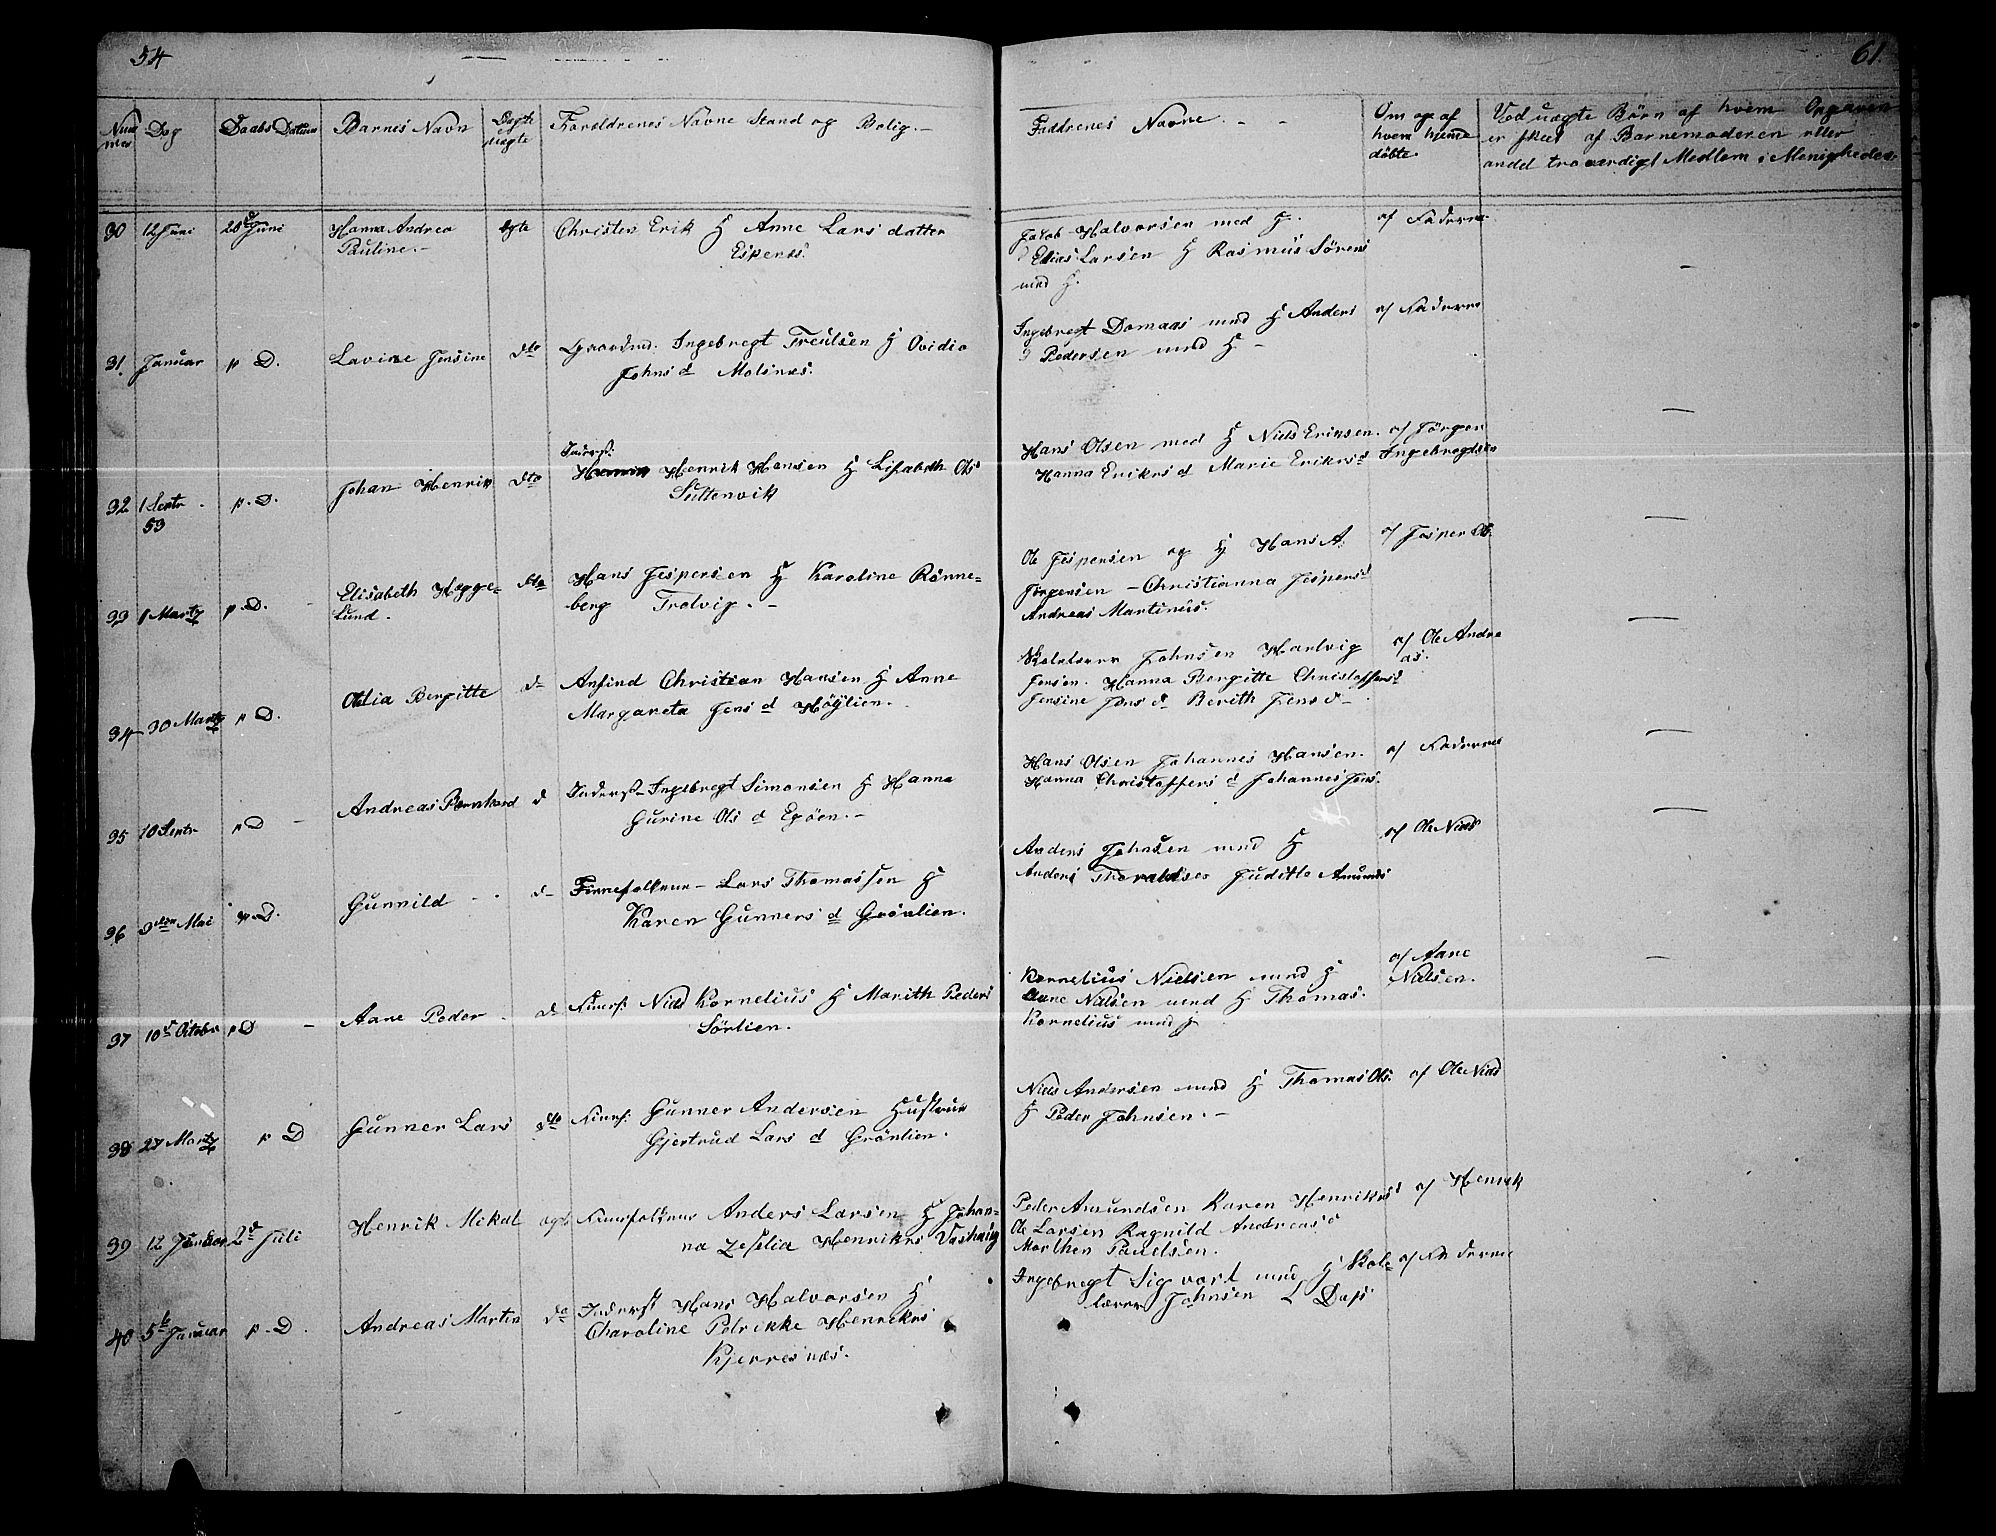 54
61.
Num
mer
Dag
Daabs Datum
Barnes Navn
Ægte
uægte
Forældrenes Navne Stand og Bolig. –
Faddrenes Navne. – –
Om og af
hvem hjemme
døbte.
Ved uægte Børn af hvem Opgaven
er skeet af Barnemoderen eller
andet troværdigt Medlem i Menigheden
30 12 Juni
Juni
Hanna Andrea
Pauline. –
ægte
Christen Erik H Anne Lars datter
Espenes.
Jakob Halvorsen med H.
Elias Larsen H Rasmus Sörens
med H.
af Faderen
–
31. Januar p D.
Lavine Jensine
dto
Ingebregt H Ovidia
Johns d Molsnæs.
Ingebregt Domaas med H Anders
Pedersen med H –
af Faderen
–
32 1 Septr
53
p. D.
Johan Henrik
dto
Inderst.
Henrik Hansen H Lisabeth Ols
Sultenvik
Hans Olsen med H Niels Eriksen.
Hanna Eriks d Marie Eriks d
af Jörgen
Ingebregtsen
–
33 1 Martz p. D.
Elisabeth Hegge-
lund.
dto
Hans Jespersen H Karoline Rönne-
berg Trolvig. –
Ole Jespersen og H Hans A.
Jörgensen – Christianna Jespers d
Andreas Martinus.
af Jesper Ols.
–
34 30 Martz p D.
Otelia Bergitte
d
Anfind Christian Hansen H Anne
Margareta Jens d Höylien.
Skolelærer Johnsen Hartvig
Jensen. Hanna Bergitte Christoffers d
Jensine Jens d Berith Jens d –
af Ole Andre
as.
–
35 10 Septr p D –
Andreas Bernhard
d
Inderst – Ingebregt Simonsen H Hanna
Gurine Ols d Egöen. –
Hans Olsen Johannes Hansen.
Hanna Christoffers d Johannes Jens.
af Faderen
–
36 9den Mai p. D.
Gunnild
d –
Finnefolkene – Lars Thomassen H
Karen Gunners d Grönlien.
Anders Johnsen med H
Anders Juditte Amunds
af Ole Niels
–
37 10d Octobr p D –
Aane Peder
d
Niels Kornelius H Marith Peders
Sörlien.
Kornelius Nielsen med H
Aane Nilsen med H Thomas.
Kornelius med H
af Aane
Nielsen.
–
38 27 Martz p D
Gunner Lars
dto
Gunner Andersen Hustrue
Gjertrud Lars d Grönlien.
Niels Andersen med H Thomas Ols.
H Peder Johnsen. –
af Ole Niels
39 12 Januar 2d Juli
Henrik Mikal
ægte
Anders Larsen H Johan-
na Zesilia Henriks Vashaug
Peder Amundsen Karen Henriks d
Ole Larsen Ragnild Andreas d
Marthen Paulsen.
af Henrik
40 5te Januar p. D.
Andreas Martin
do
Inderst Hans Halvorsen H
Charoline Petrikke Henriks
Kjerresnæs.
Ingebregt Sigvart med H Skole
lærer Johnsen
af Faderen